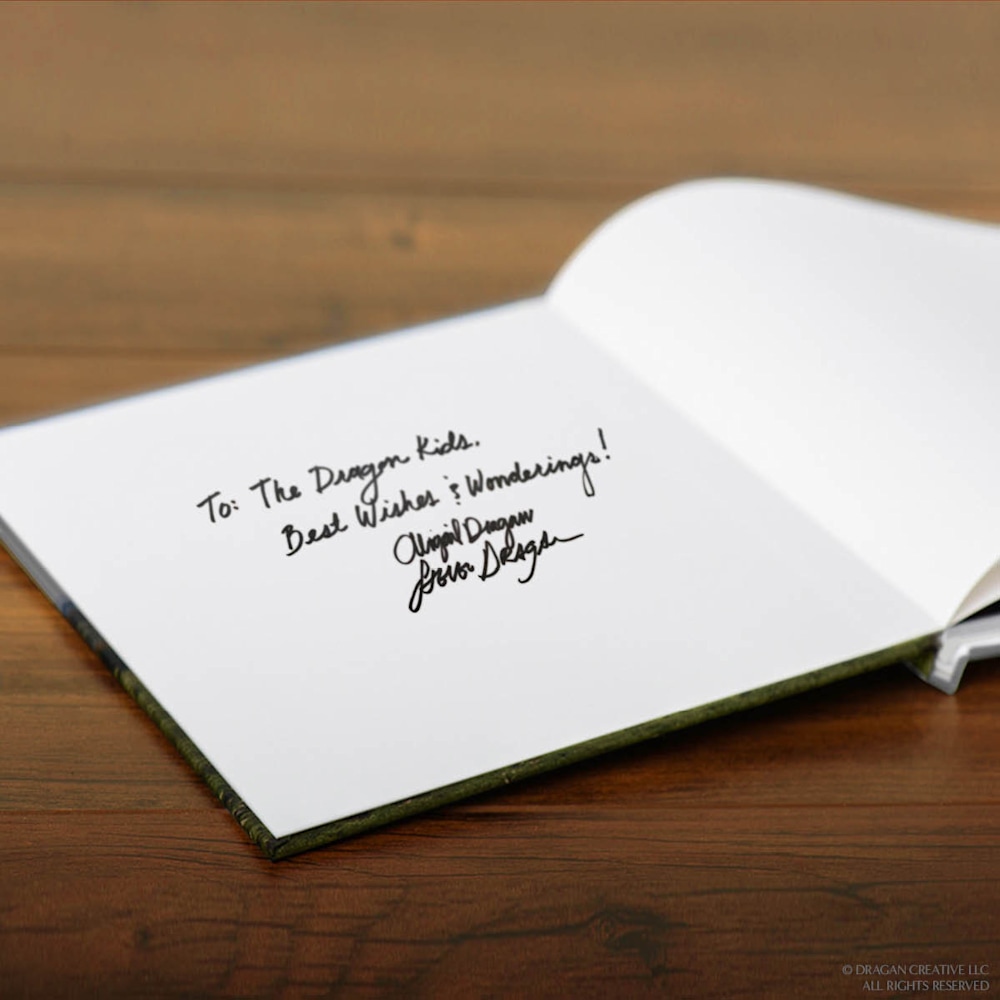 To: The Dragon Kids.
Best Wishes & Wonderings!
Abigail Dragan
Steve Dragan
© DRAGAN CREATIVE LLC
ALL RIGHTS RESERVED